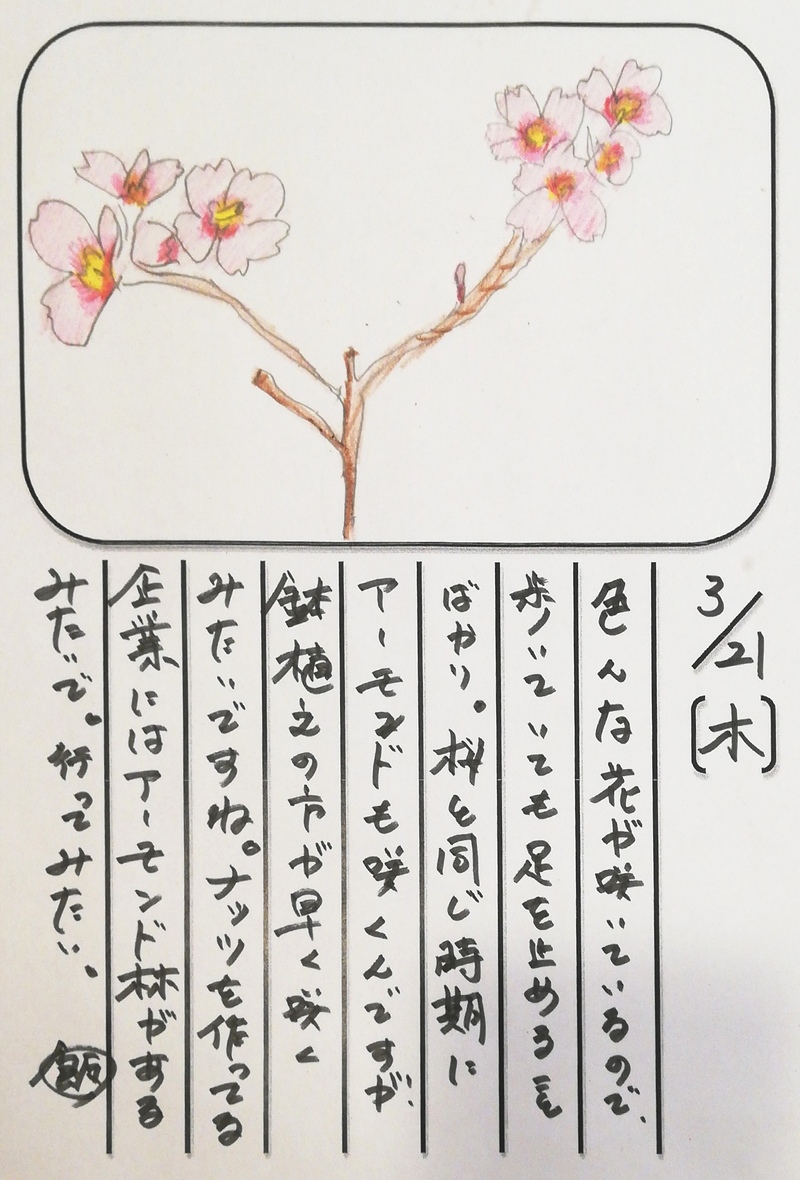 3/21
[木]
色んな花が咲いているので、
歩いていても足を止める
ばかり。桜と同じ時期に
アーモンドも咲くんですが、
鉢植えの方が早く咲く
みたいですね。ナッツを作ってる
企業にはアーモンド林がある
みたいで。行ってみたい。 飯